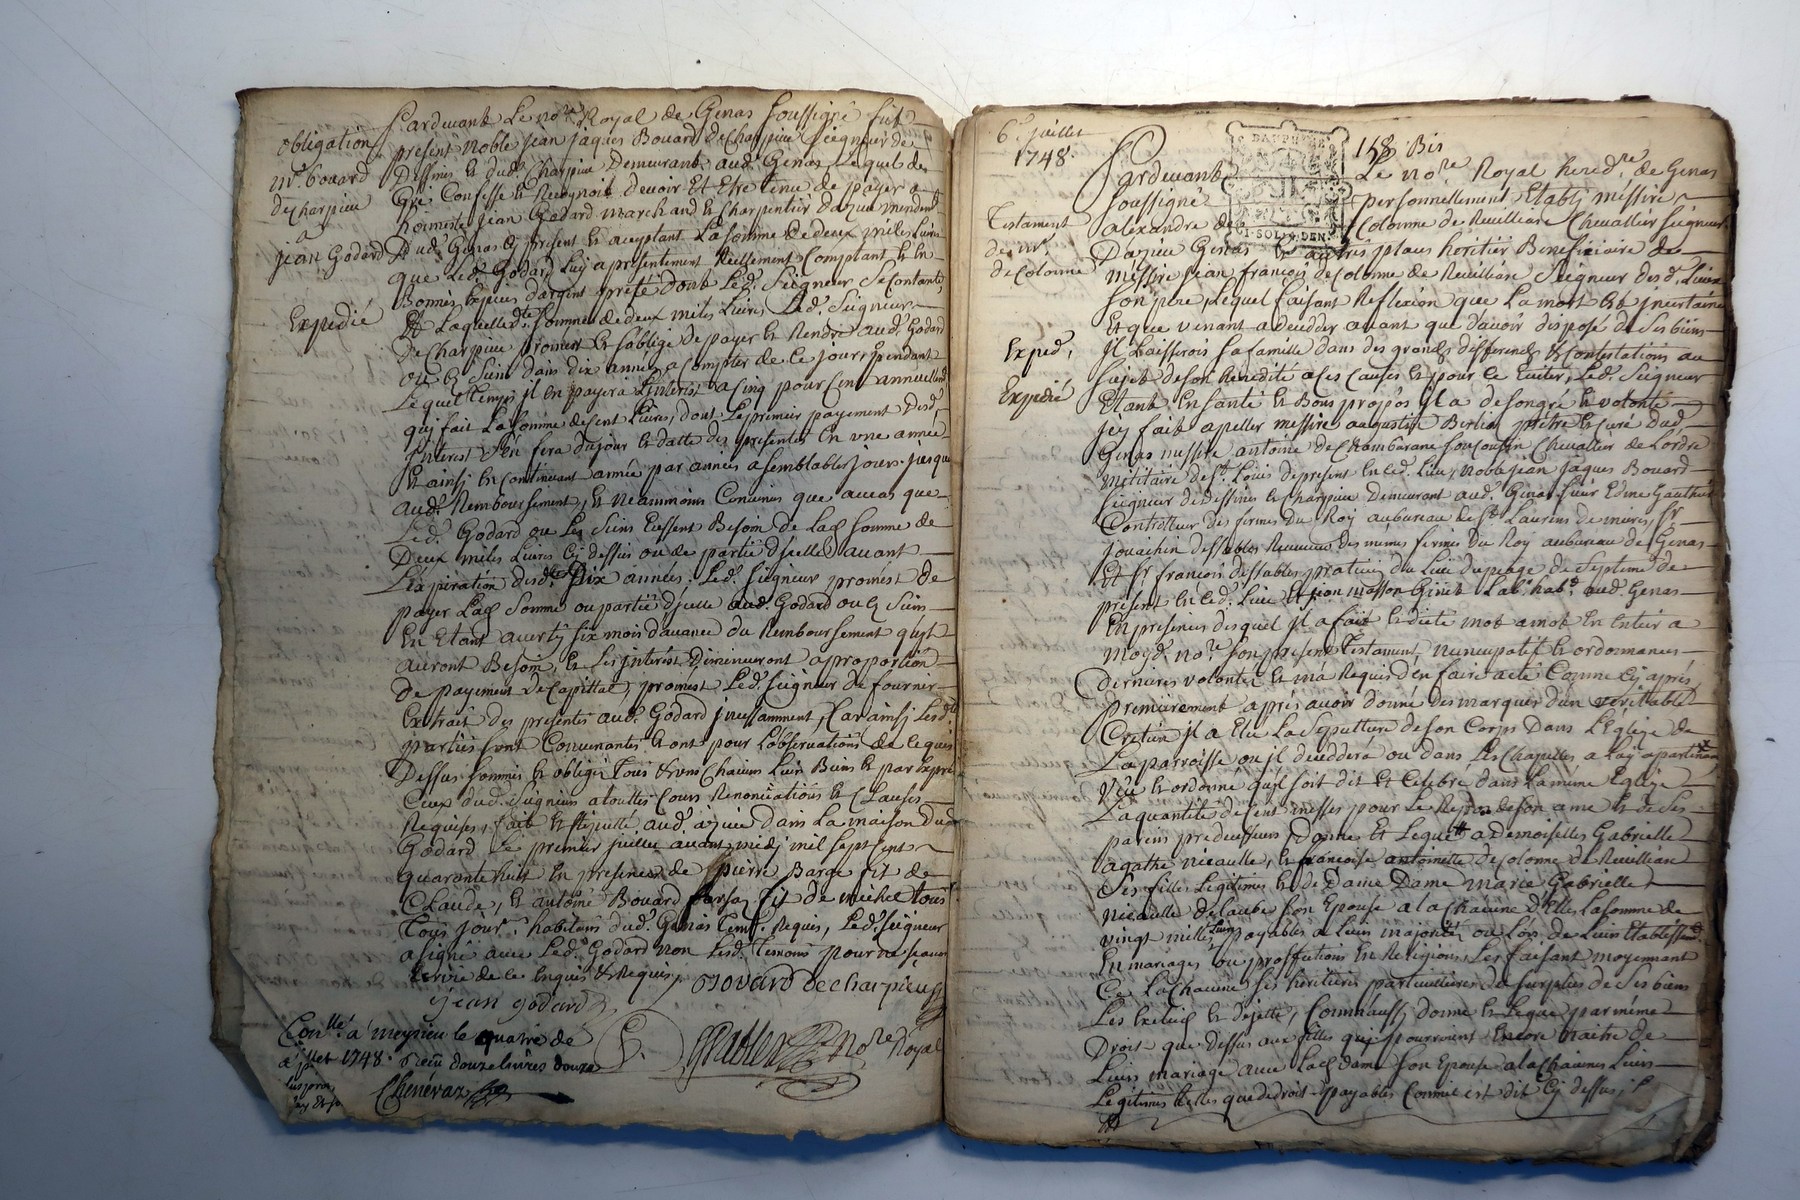 obligation
mr. bouard
de Charpieu
a
jean Godard
Expedié
Pardevant Le nore. Royal de Genas soussigné fut
present noble Jean Jaques Bouard de Charpieu Seigneur de
Dessines et dud. Charpieu Demeurant aud. Genas Lequel de
Gré Confesse et Recognoit devoir Et Etre tenu de payer a
honneste Jean Godard marchand et Charpentier d'azieu mendemt.
Dud. Genas Cy present et acceptant La somme de deux miles Livres
que Led. Godard Luy a presentement Reellement Comptant et En
Bonnes Especes d'argent preté dont Led. Seigneur Se Contante,
Et Laquelle dte. somme de deux miles Livres Led. Seigneur
De Charpieu promet et s'oblige De payer et Rendre aud. Godard
ou és Siens dans dix années a Compter de Ce jour, pendant
Lequel temps il en payera L'interest a Cinq pour Cent annuellemt.
quj fait La somme de Cent Livres, dont Le premier payement Desd.
Interest s'en fera dujour et datte des presentes En une année
Et ainsj en Continuant année par années a semblables jours jusques
aud. Remboursement, et neanmoins Convenus que au cas que
Led. Godard ou Les Siens Eussent Besoin de Lad. somme de
Deux miles Livres Cy dessus ou de partie d'icelle avant
L'expiration desd. Dix années, Led. Seigneur promest de
payer Lad. Somme ou partie d'icelle aud. Godard ou és Siens
En Etant averty six mois d'avance du Remboursement qu'ils
auront Besoin, et Les interest Diminueront a proportion
De payement de Capittal, promest Led. Seigneur de fournir
Extrait des presentes aud. Godard jncessamment, Car ainsj Lesd.
parties sont Convenantes et ont pour L'observations de Ce que
Dessus soumis et obligés Tous et uns Chacuns Leurs Biens et par Exprés
Ceux dud. Seigneur a touttes Cours Renonciations et Clauses
Requises, fait et stipullé aud. azieu dans La maison dud.
Godard Le premier juillet avant midj mil sept Cents
quarante huit En presences de Pierre Barge fit de
Claude, et antoine Bouard fit de michel tous
habitans dud. Genas tem. Requis, Led. Seigneur
a signé avec Led. Godard non Lesd. Temoins pour ne sçavoir
Ecrire de Ce Enquis et Requis,
Bouard de charpieu
jean godard
nore Royal
Conllé. a meyzieu le quatre de
1748. Reçu douze livres douze
Chenévaz
6e. juillet
1748.
158 Bis
DAUPHINÉ
SOLS
DEN.
Testament
de mr.
de Colonne
Exped.
Expedié
Pardevant Le nore. Royal hered.re de Genas
soussigné personnellement Etably messire
alexandre de Colonne de Revilliasc Chevallier Seigneur
D'azieu Genas et autres places heritier Beneficiaire de
messire jean françois de Colonne de Revilliasc Seigneur desd. Lieux
son pere, Lequel faisant Reflexion que La mort Est jncertaine
Et que venant a decedder avant que d'avoir disposé de ses biens
jl Laisserois sa famille dans des grands differends et Contestations au
sujet de son heredité a Ces Causes et pour Ce Eviter, Led. Seigneur
Etant En santé et Bons propos jl a de son gré et volonté
jcy fait apeller messire augustin Berlia prêtre et curé dud.
Genas messire antoine de Chambaran Chevallier de Lordre
militaire de St. Louis de present En Ced. Lieu, noble jean jaques Bouard
seigneur de dessines et Charpieu Demeurant aud. Genas sieur Edme Gauthier
Contrôlleur des fermes du Roy au bureau de St. Laurens de mures, sr.
jouachin dessables Receveur des memes fermes du Roy au bureau de Genas
Et sr. francois dessables praticien du Lieu du peage de Septeme de
present en Ced. Lieu Et jean masson Ginet Labr. habt. aud. Genas
En presences desquel jl a fait et dicté mot a mot En Entier a
moyd. nore. son present Testament, nuncupatif et ordonnances
dernieres volontés et m'a Requis d'en faire acte Comme Cy aprés,
Premierement aprés avoir donné des marques d'un veritable
Cretien jl a Elû La sepulture de son Corps Dans L'Eglise de
La parroisse ou jl deceddera ou dans Les Chapelles a Luy apartenant,
veu et ordonné qu'il soit dit et Celebré dans La meme Eglise
La quantité de Cent messes pour Le Repos de son ame et de Ses
parens predecesseurs donne et Legue a demoiselles Gabrielle
agathe nicaulle, et francoise antoinette de Colonne de Revilliasc
Ses filles Legitimes et de Dame Dame marie Gabrielle
nicaulle Delaube son Epouse a La Chacune d'Elles La somme de
vingt milles Livres payables a Leurs majorité, ou Lors de Leurs Etablissemt.
En mariages ou proffessions En Religions, Les faisant moyennant
Ce La Chacune ses heritieres particulieres du surplus de Ses biens
Les Exclud et dejette, Comm'aussj donne et Legue par même
Droit que dessus aux filles quj pourroient Encore naitre de
Leurs mariage avec Lad. dame son Epouse a La Chacunes Leurs
Legitimes telles que de droit payables Comme est dit Cy dessus,